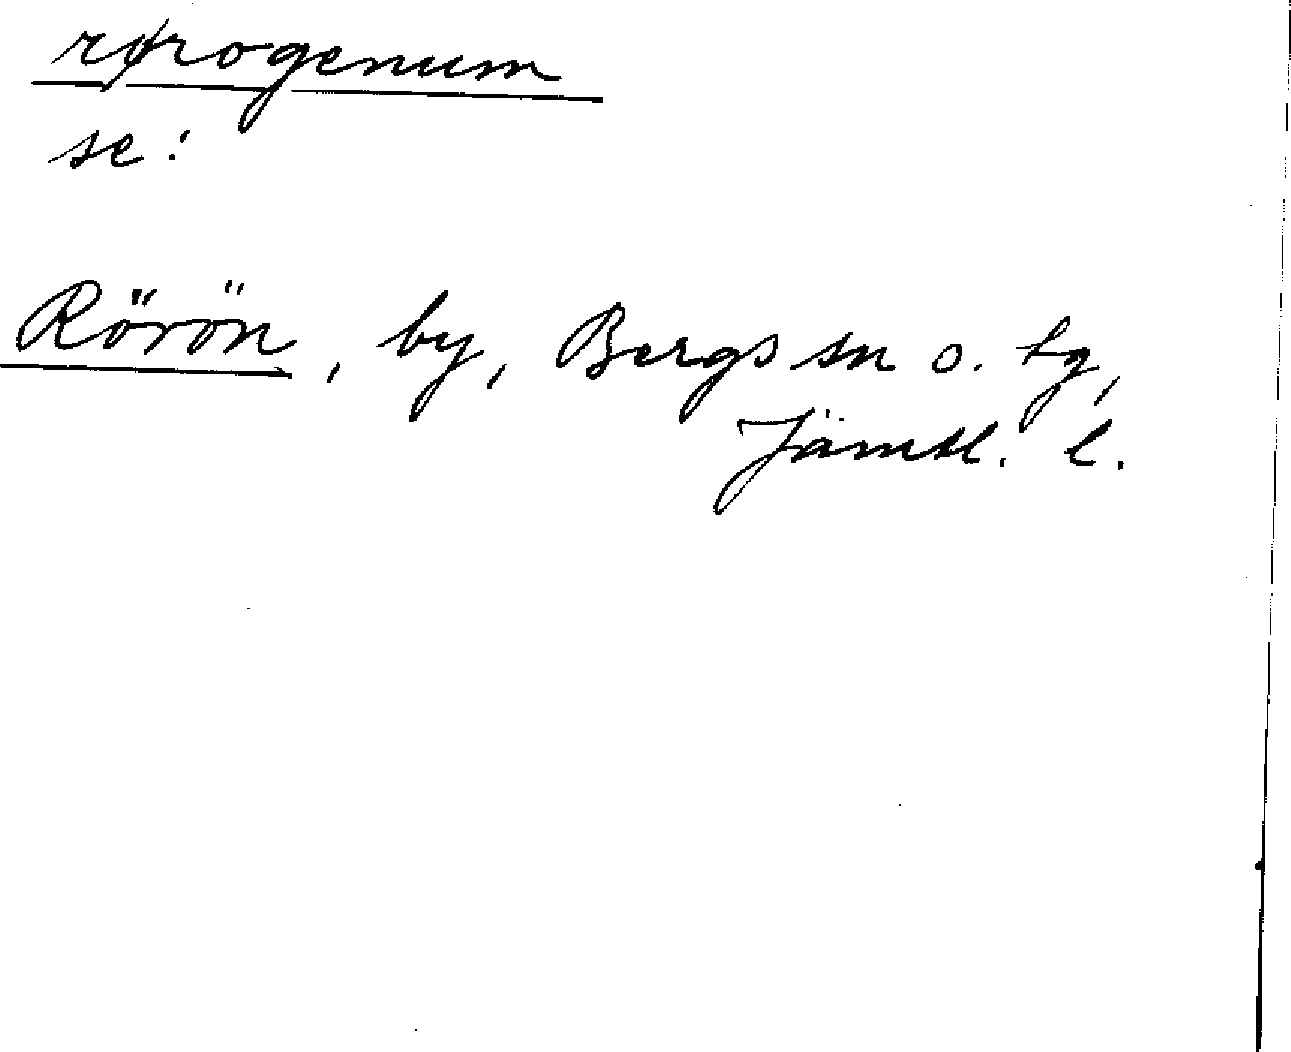 rørogenum
se:
Rörön, by, Bergs sn o. tg,
Jämtl. l.